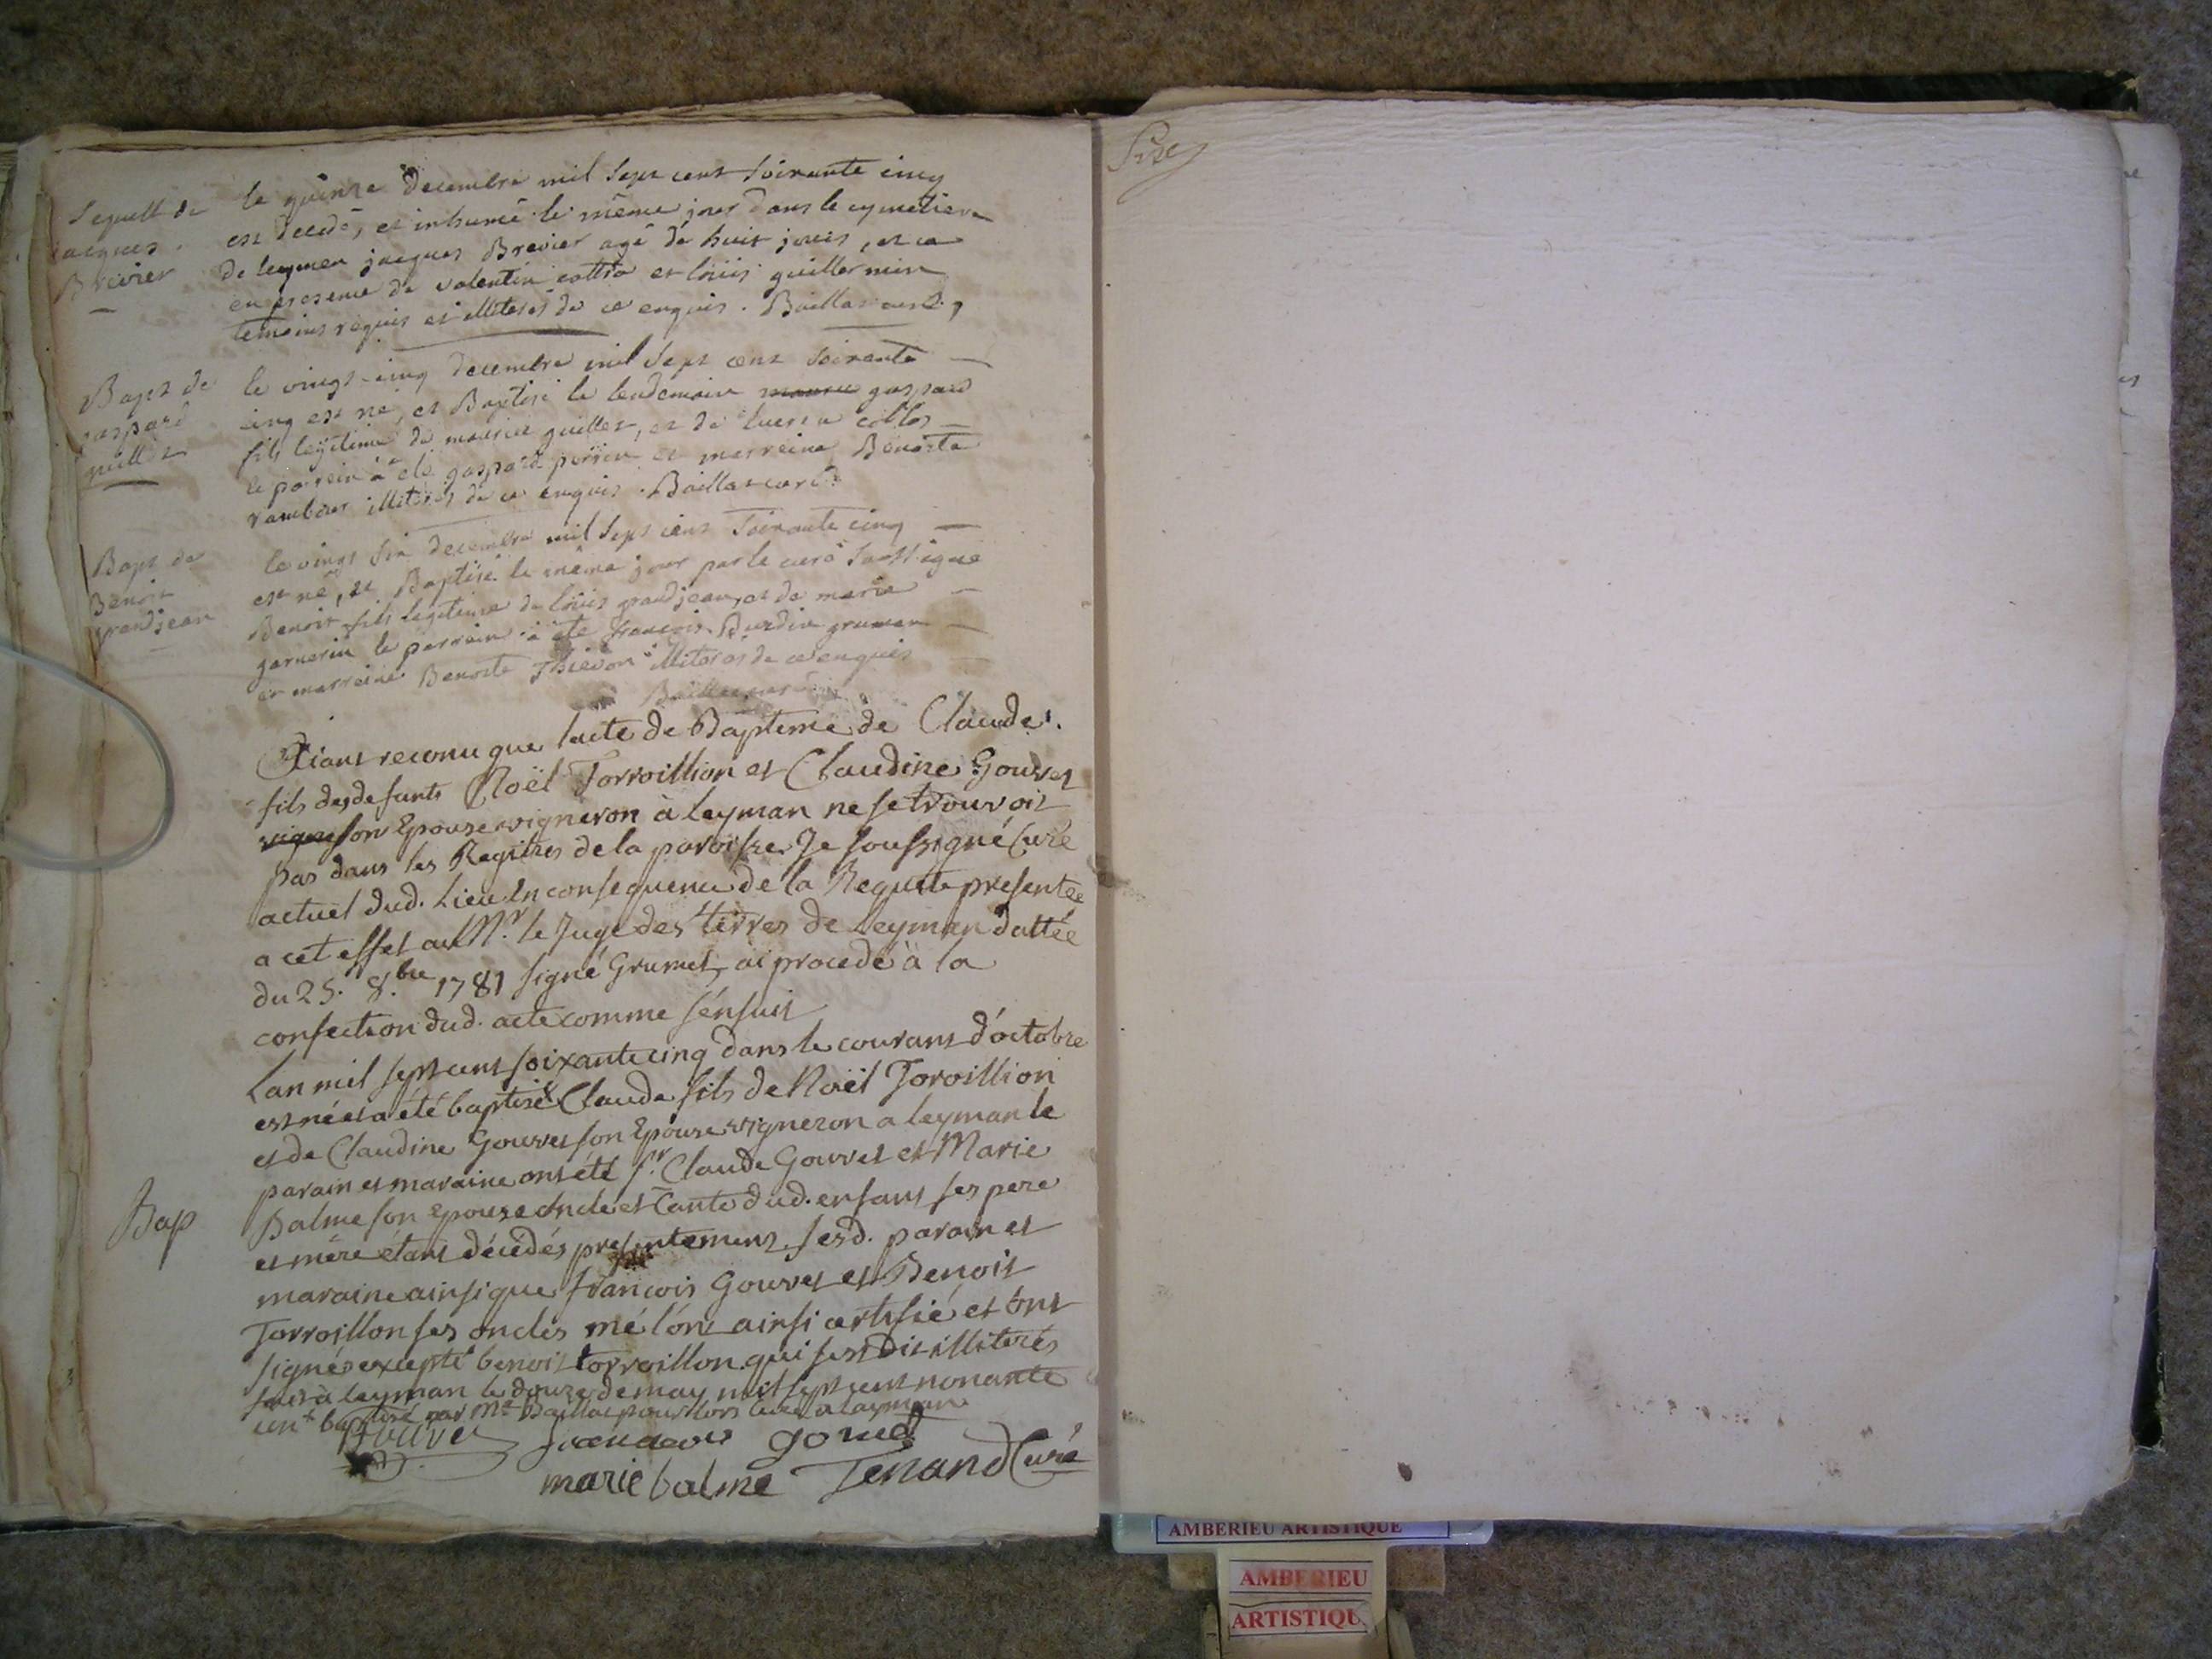 Sepult de
jacques
Brevier
le quinze decembre mil sept cent soixante cinq
est decedé, et inhumé le même jour dans le cymetiere
de leymen jacques Brevier agé de huit jours, et ce
en presence de valentin cottin et loüis guillermin
temoins requis et illiterés de ce enquis. Baillat curé
Bapt de
gaspard
guillet
le vingt-cinq decembre mil sept cent soixante
cinq est né, et Baptisé le lendemain gaspard
fils legitime de maurice guillet, et de
le parrein a été gaspard perrin et marreine Benoite
illiterés de ce enquis. Baillat curé
Bapt de
Benoit
grandjean
le vingt six decembre mil sept cent soixante cinq
est né, et Baptisé le même jour par le curé soussigné
Benoit fils legitime de loüis grandjean, et de marie
garnerin le parrein a été françois
et marreine Benoite Thievon illiterés de ce enquis
Baillat curé
Etant reconu que lacte de Bapteme de Claude
fils des defunts Noël Torroillion et Claudine Gouvet
son Epouse vigneron à leyman ne se trouvoit
pas dans les Regitres de la paroisse Je soussigné Curé
actuel dud. Lieu En consequence de la Requete presentée
a cet effet a Mr. le Juge des terres de Leyman dattée
du 25. 8.bre 1781 signé Grumet, ai procedé à la
confection dud. acte comme s'ensuit
Lan mil sept cent soixante cinq dans le courant d'octobre
est né et a été baptisé Claude fils de Noël Toroillion
et de Claudine Gouvet son Epouse vigneron a leyman le
parain et maraine ont été sr. Claude Gouvet et Marie
Bap
Balme son epouse oncle et Tante dud. enfant ses pere
et mére étant décédés presentement. sesd. parain et
maraine ainsi que françois Gouvet et Benoit
Torroillon ses oncles mé l'ont ainsi certifié et ont
signé excepté benoit torroillon qui sest dit illiterés
fait à leyman le douze de may mil sept cent nonante
un baptisé par Mr Baillat pour lors curé a leyman
Gouvet
gouvet
marie balme Tenand Curé
AMBERIEU ARTISTIQUE
AMBERIEU
ARTISTIQU